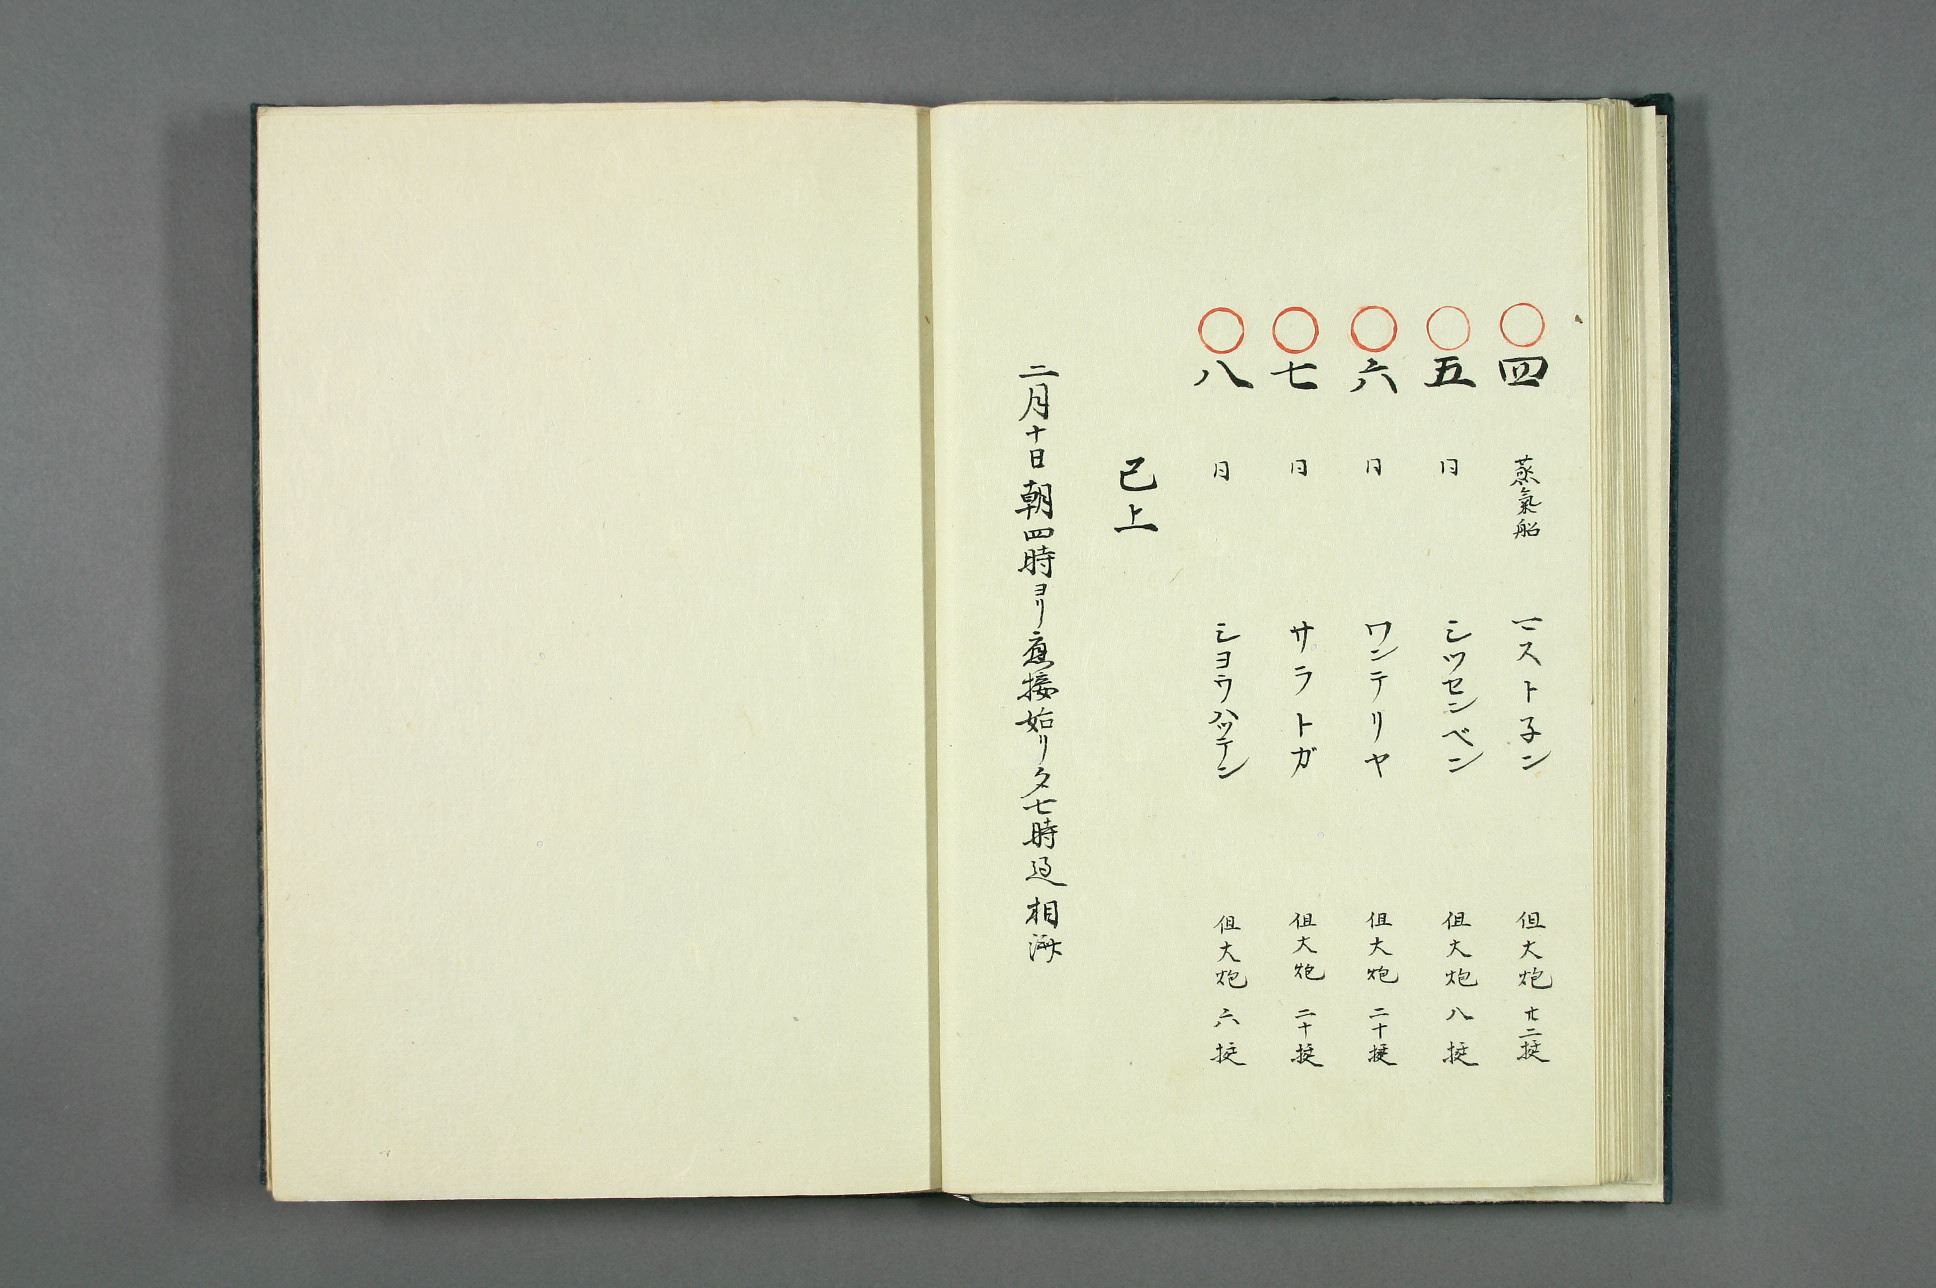 ○四 蒸氣船 マスト子ン 但大炮 廿二挺
○五 日 シツセンペン 但大炮 八挺
○六 日 ワンテリヤ 但大炮 二十挺
○七 日 サラトガ 但大炮 二十挺
○八 日 シヨウハツテン 但大炮 六挺
已上
二月十日朝四時ヨリ應接始リ夕七時過相濟